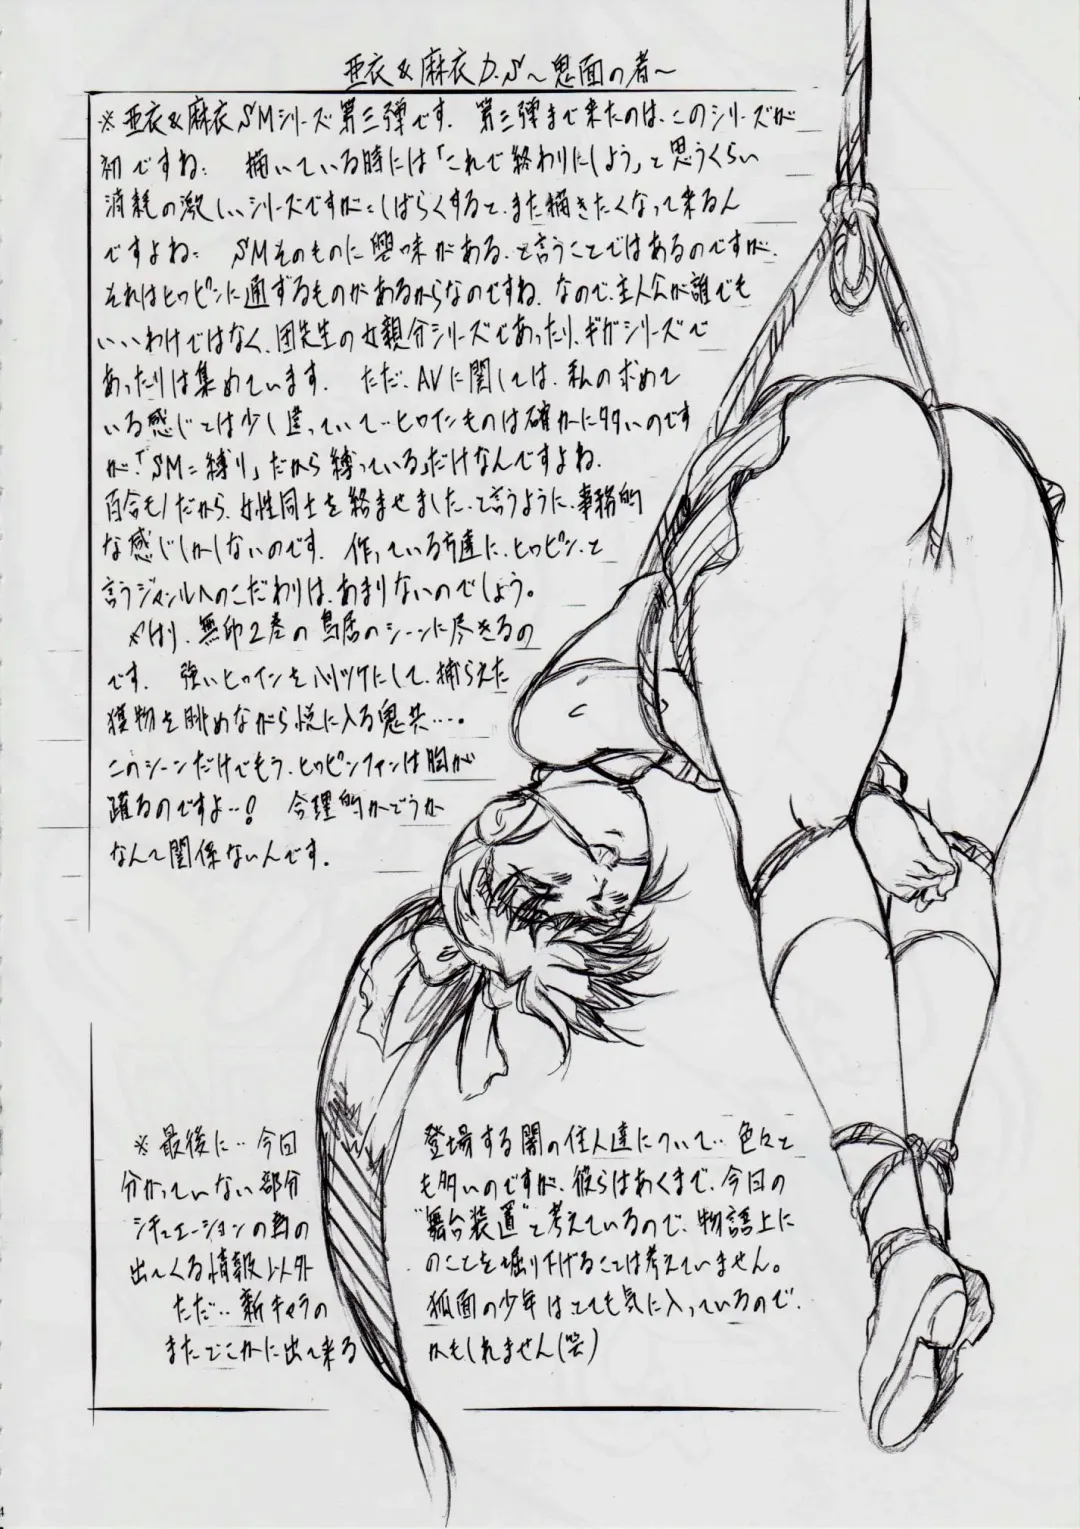 亜衣&麻衣D.S～鬼面の者～
※亜衣&麻衣SMシリーズ第三弾です。第三弾まで来たのは、このシリーズが
初ですね。描いている時には「これで終わりにしよう」と思うくらい
消耗の激しいシリーズですが…しばらくすると、また描きたくなって来るん
ですよね。SMそのものに興味がある、と言うことではあるのですが、
それはヒロピンに通ずるものがあるからなのですね。なので、主人公が誰でも
いいわけではなく、団先生の女親分シリーズであったり、ギガシリーズで
あったりは集めています。ただ、AVに関しては、私の求めて
いる感じとは少し違っていて…ヒロインものは確かに多いのです
が、「SM=縛り」だから縛っている」だけなんですよね。
百合モノだから、女性同士を絡ませました、と言うように、事務的
な感じしかしないのです。作っている方達に、ヒロピン、と
言うジャンルへのこだわりは、あまりないのでしょう。
やはり、無印2巻の鳥居のシーンに尽きるの
です。強いヒロインをハリツケにして、捕らえた
獲物を眺めながら悦に入る鬼共…。
このシーンだけでもう、ヒロピンファンは胸が
躍るのですよ…!合理的かどうか
なんて関係ないんです。
※最後に…今回登場する闇の住人達について…色々と
分かっていない部分も多いのですが、彼らはあくまで、今回の
シチュエーションの為の"舞台装置"と考えているので、物語上に
出てくる情報以外のことを掘り下げることは考えていません。
ただ…新キャラの狐面の少年はとても気に入っているので、
またどこかに出て来るかもしれません(笑)